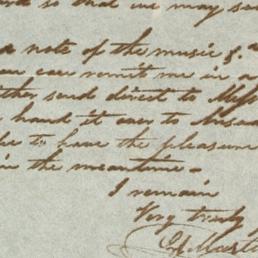 so that we may se
a note of the music &
can remit me in a
send direct to Mess
hand it over to
to have the pleasure
in the meantime -
I remain
Very truly